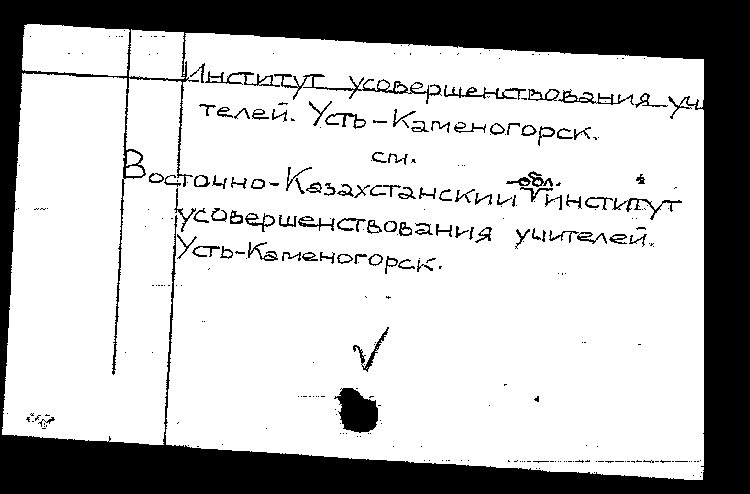 Институт усовершенствования учи
телей. Усть-Каменогорск.
см.
обл.
Восточно-Казахстанский институт
усовершенствования учителей.
Усть-Каменогорск.